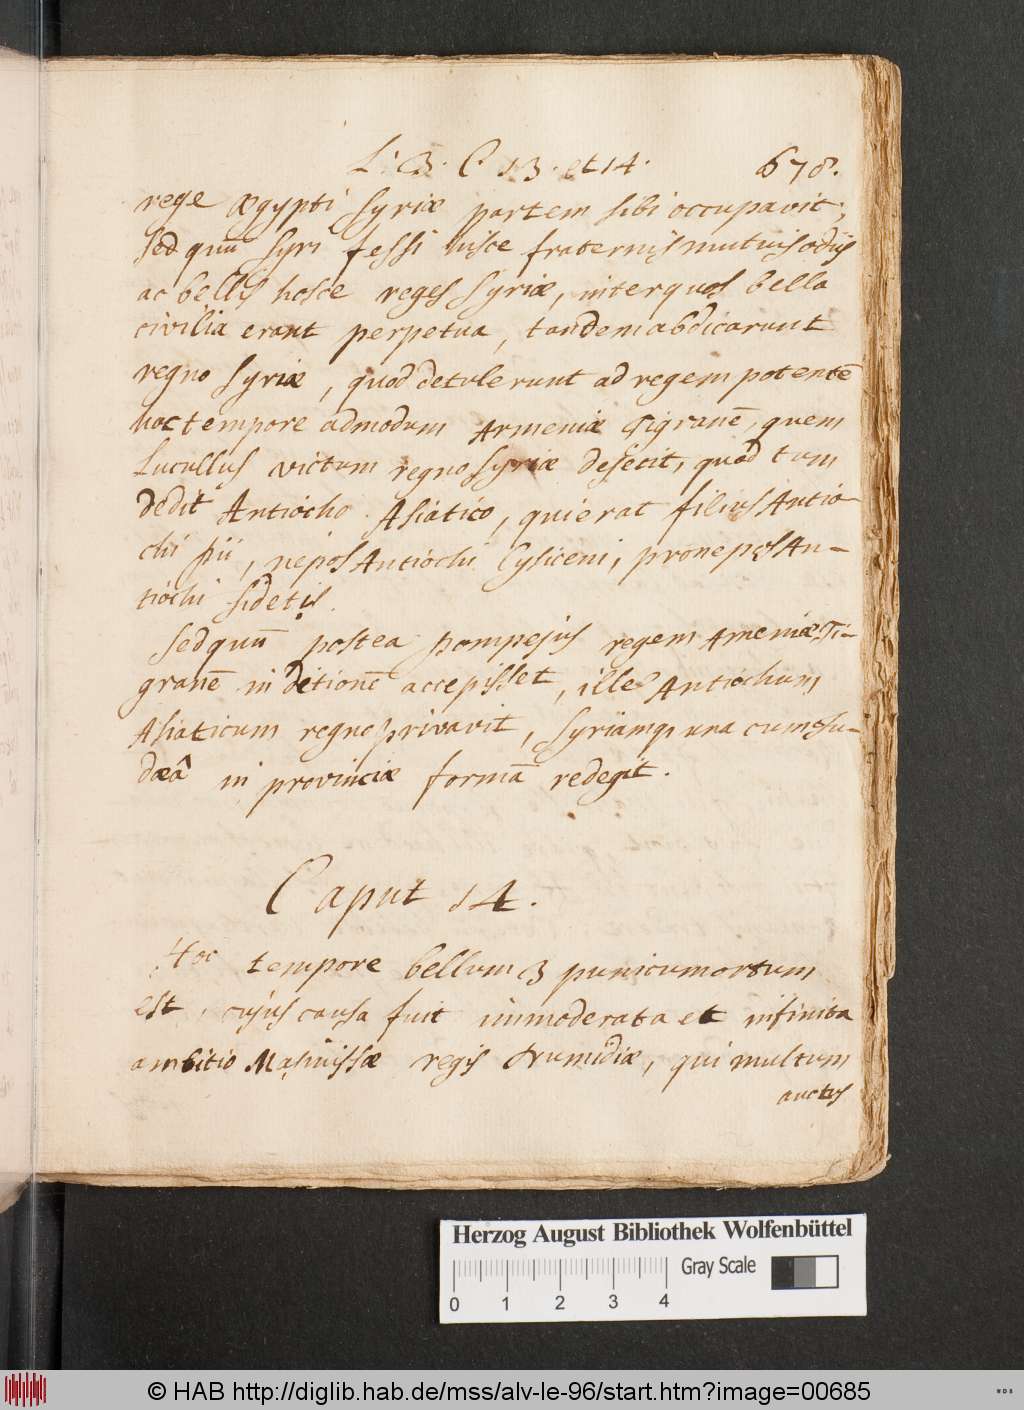 L: 3. C. 13. et 14. 678.
rege Ægypti Syriæ partem sibi occupavit;
Sed quū Syri fessi hisce fraternis mutuis odiis
ac bellis hosce reges Syriæ, inter quos bella
civilia erant perpetua, tandem abdicarunt
regno Syriæ, quod detulerunt ad regem potentē
hoc tempore admodum Armeniæ Tigranē, quem
Lucullus victum regno Syriæ dejecit, quod tum
dedit Antiocho Asiatico, qui erat filius Antio-
chi Pii, nepos Antiochi Cysiceni, pronepos An-
tiochi Sidetis.
Sed quū postea Pompejus regem Armeniæ Ti-
granē in ditionē accepisset, ille Antiochum
Asiaticum regno privavit, Syriamq; una cum Ju-
dæâ in provinciæ formā redegit.
Caput 14.
Hoc tempore bellum 3 punicum ortum
est, cujus causa fuit immoderata et infinita
ambitio Masinissæ regis Numidiæ, qui multum
auctus
Herzog August Bibliothek Wolfenbüttel
Gray Scale
0 1 2 3 4
© HAB http://diglib.hab.de/mss/alv-le-96/start.htm?image=00685